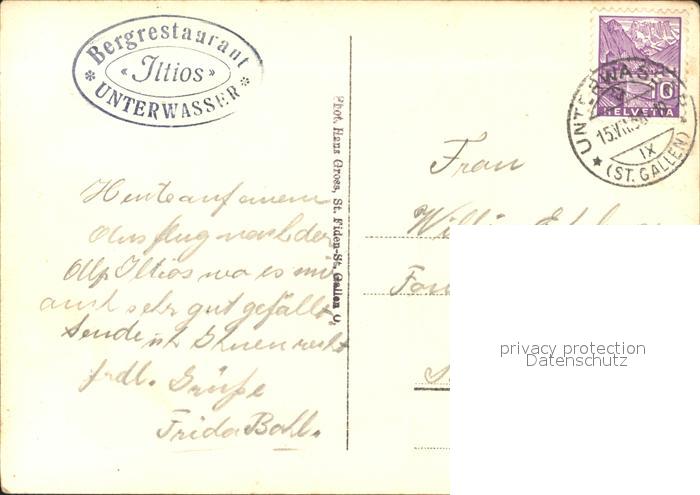 Bergrestaurant
« Iltios »
UNTERWASSER
Phot. Hans Gross, St. Fiden-St. Gallen O.
10
HELVETIA
UNTERWASSER
15.VII.
IX
(ST. GALLEN)
Heute auf einem
Ausflug nach der
Alp Iltios wo es mir
auch sehr gut gefällt,
Sende ich Ihnen recht
frdl. Grüße
Frida
Frau
privacy protection
Datenschutz